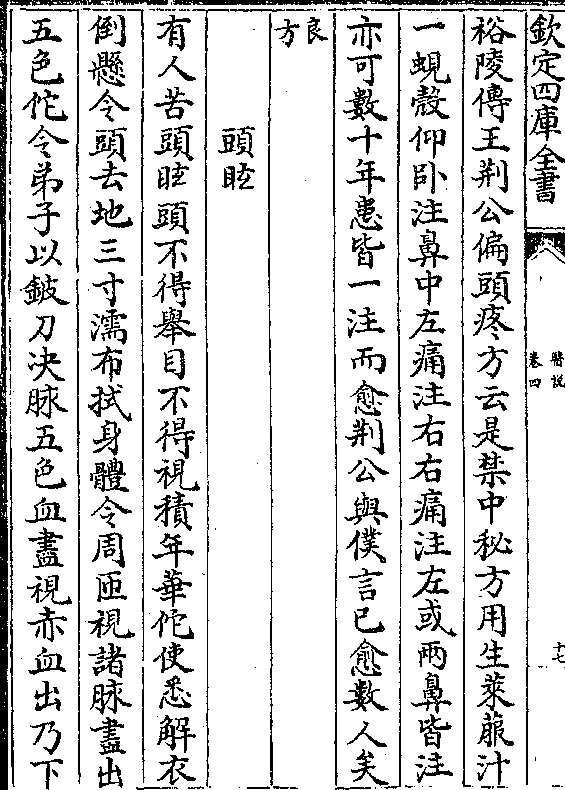 欽定四庫全書
醫説
卷四
十七
裕陵傳王荆公偏頭疼方云是禁中秘方用生萊菔汁
一蜆殻仰卧注鼻中左痛注右右痛注左或兩鼻皆注
亦可數十年患皆一注而愈荆公與僕言已愈數人矣
良
方
頭眩
有人苦頭眩頭不得舉目不得視積年華佗使悉解衣
倒懸令頭去地三寸濡布拭身體令周匝視諸脉盡出
五色佗令弟子以鈹刀决脉五色血盡視赤血出乃下